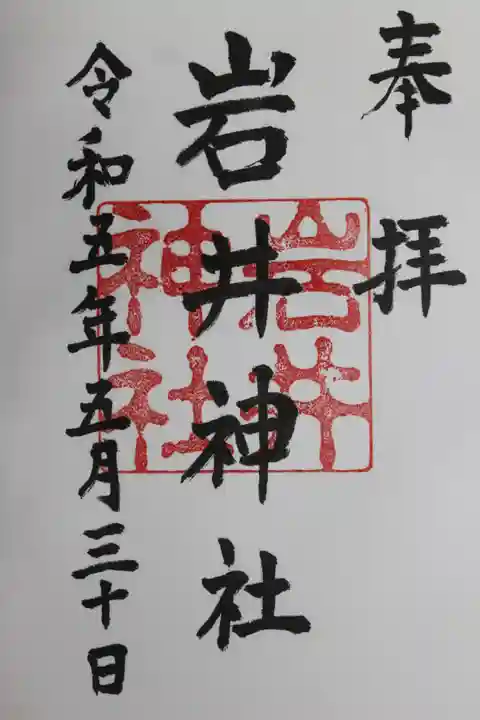 奉拝
岩井神社
岩井神社
令和五年五月三十日